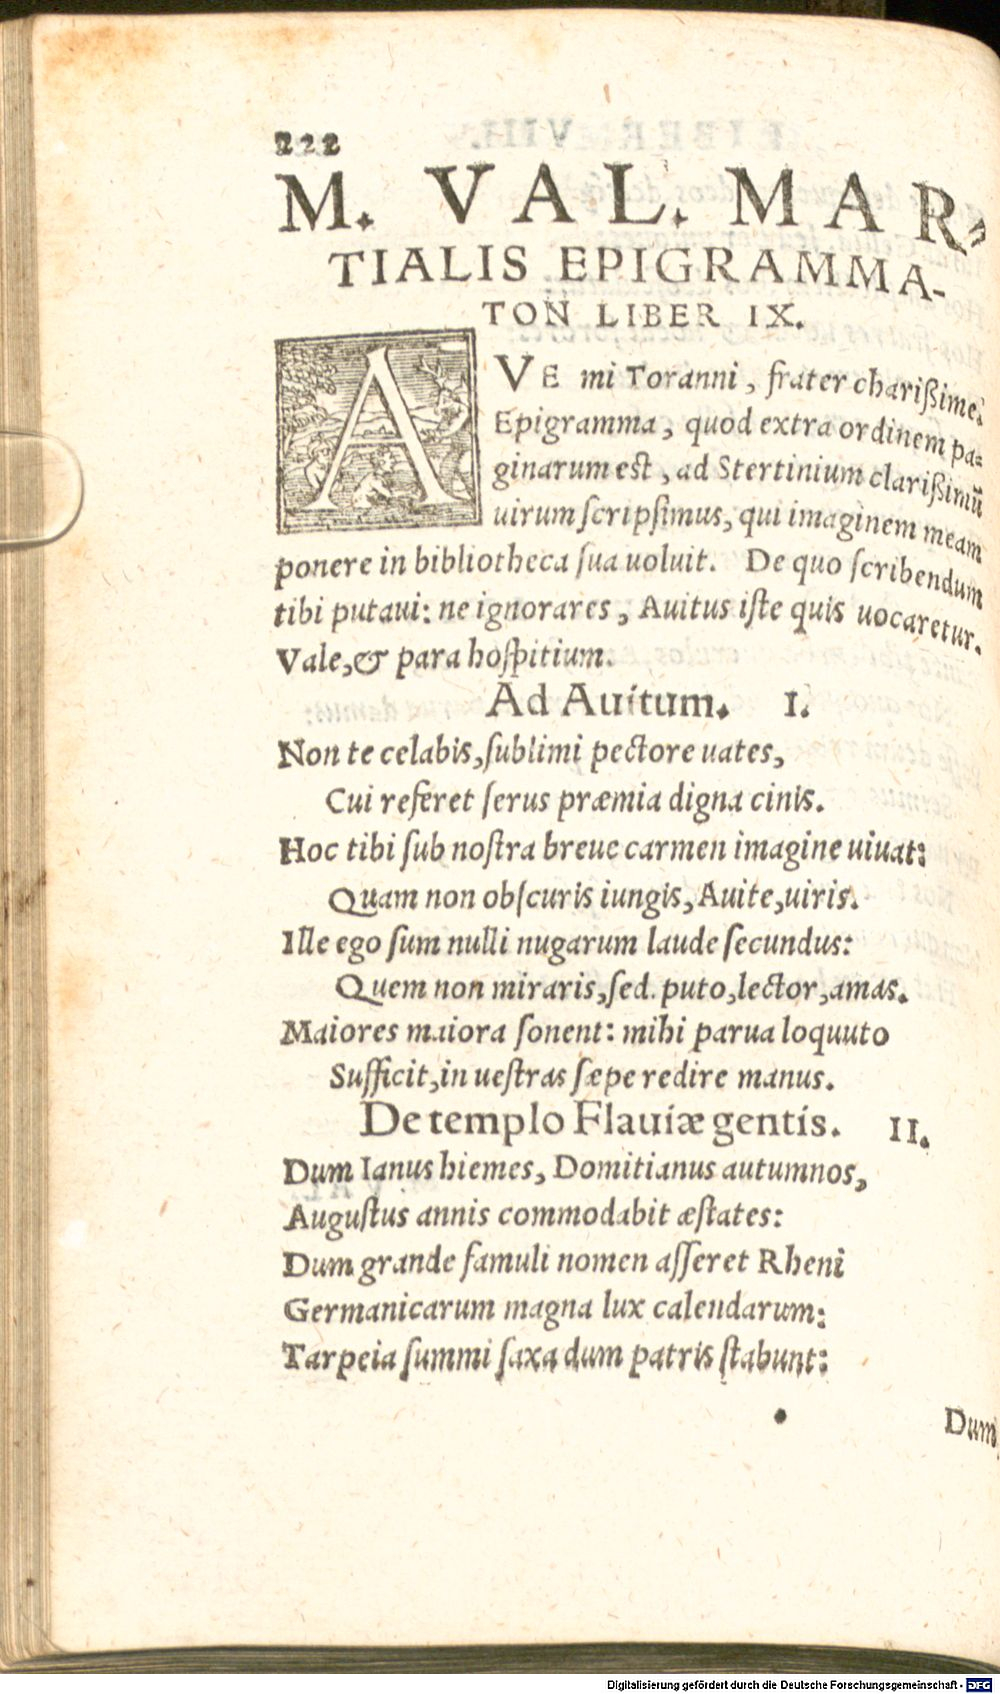 222
M. VAL. MAR-
TIALIS EPIGRAMMA-
TON LIBER IX.
AVE mi Toranni, frater charißime.
Epigramma, quod extra ordinem pa-
ginarum est, ad Stertinium clarißimū
uirum ſcripſimus, qui imaginem meam
ponere in bibliotheca ſua uoluit. De quo ſcribendum
tibi putaui: ne ignorares, Auitus iſte quis uocaretur.
Vale, & para hoſpitium.
Ad Auitum. I.
Non te celabis, ſublimi pectore uates,
Cui referet ſerus præmia digna cinis.
Hoc tibi ſub noſtra breue carmen imagine uiuat:
Quam non obſcuris iungis, Auite, uiris.
Ille ego ſum nulli nugarum laude ſecundus:
Quem non miraris, ſed. puto, lector, amas.
Maiores maiora ſonent: mihi parua loquuto
Sufficit, in ueſtras ſæpe redire manus.
De templo Flauiæ gentis. II.
Dum Ianus hiemes, Domitianus autumnos,
Auguſtus annis commodabit æſtates:
Dum grande famuli nomen aſſeret Rheni
Germanicarum magna lux calendarum:
Tarpeia ſummi ſaxa dum patris ſtabunt:
Dum
Digitalisierung gefördert durch die Deutsche Forschungsgemeinschaft - DFG